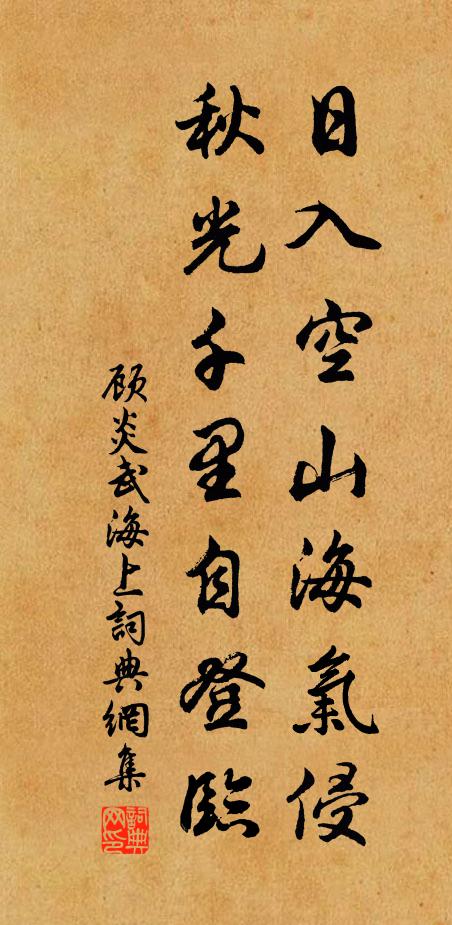 日入空山海氣侵
秋光千里自登臨
顾炎武海上詞典網集
詞典网印